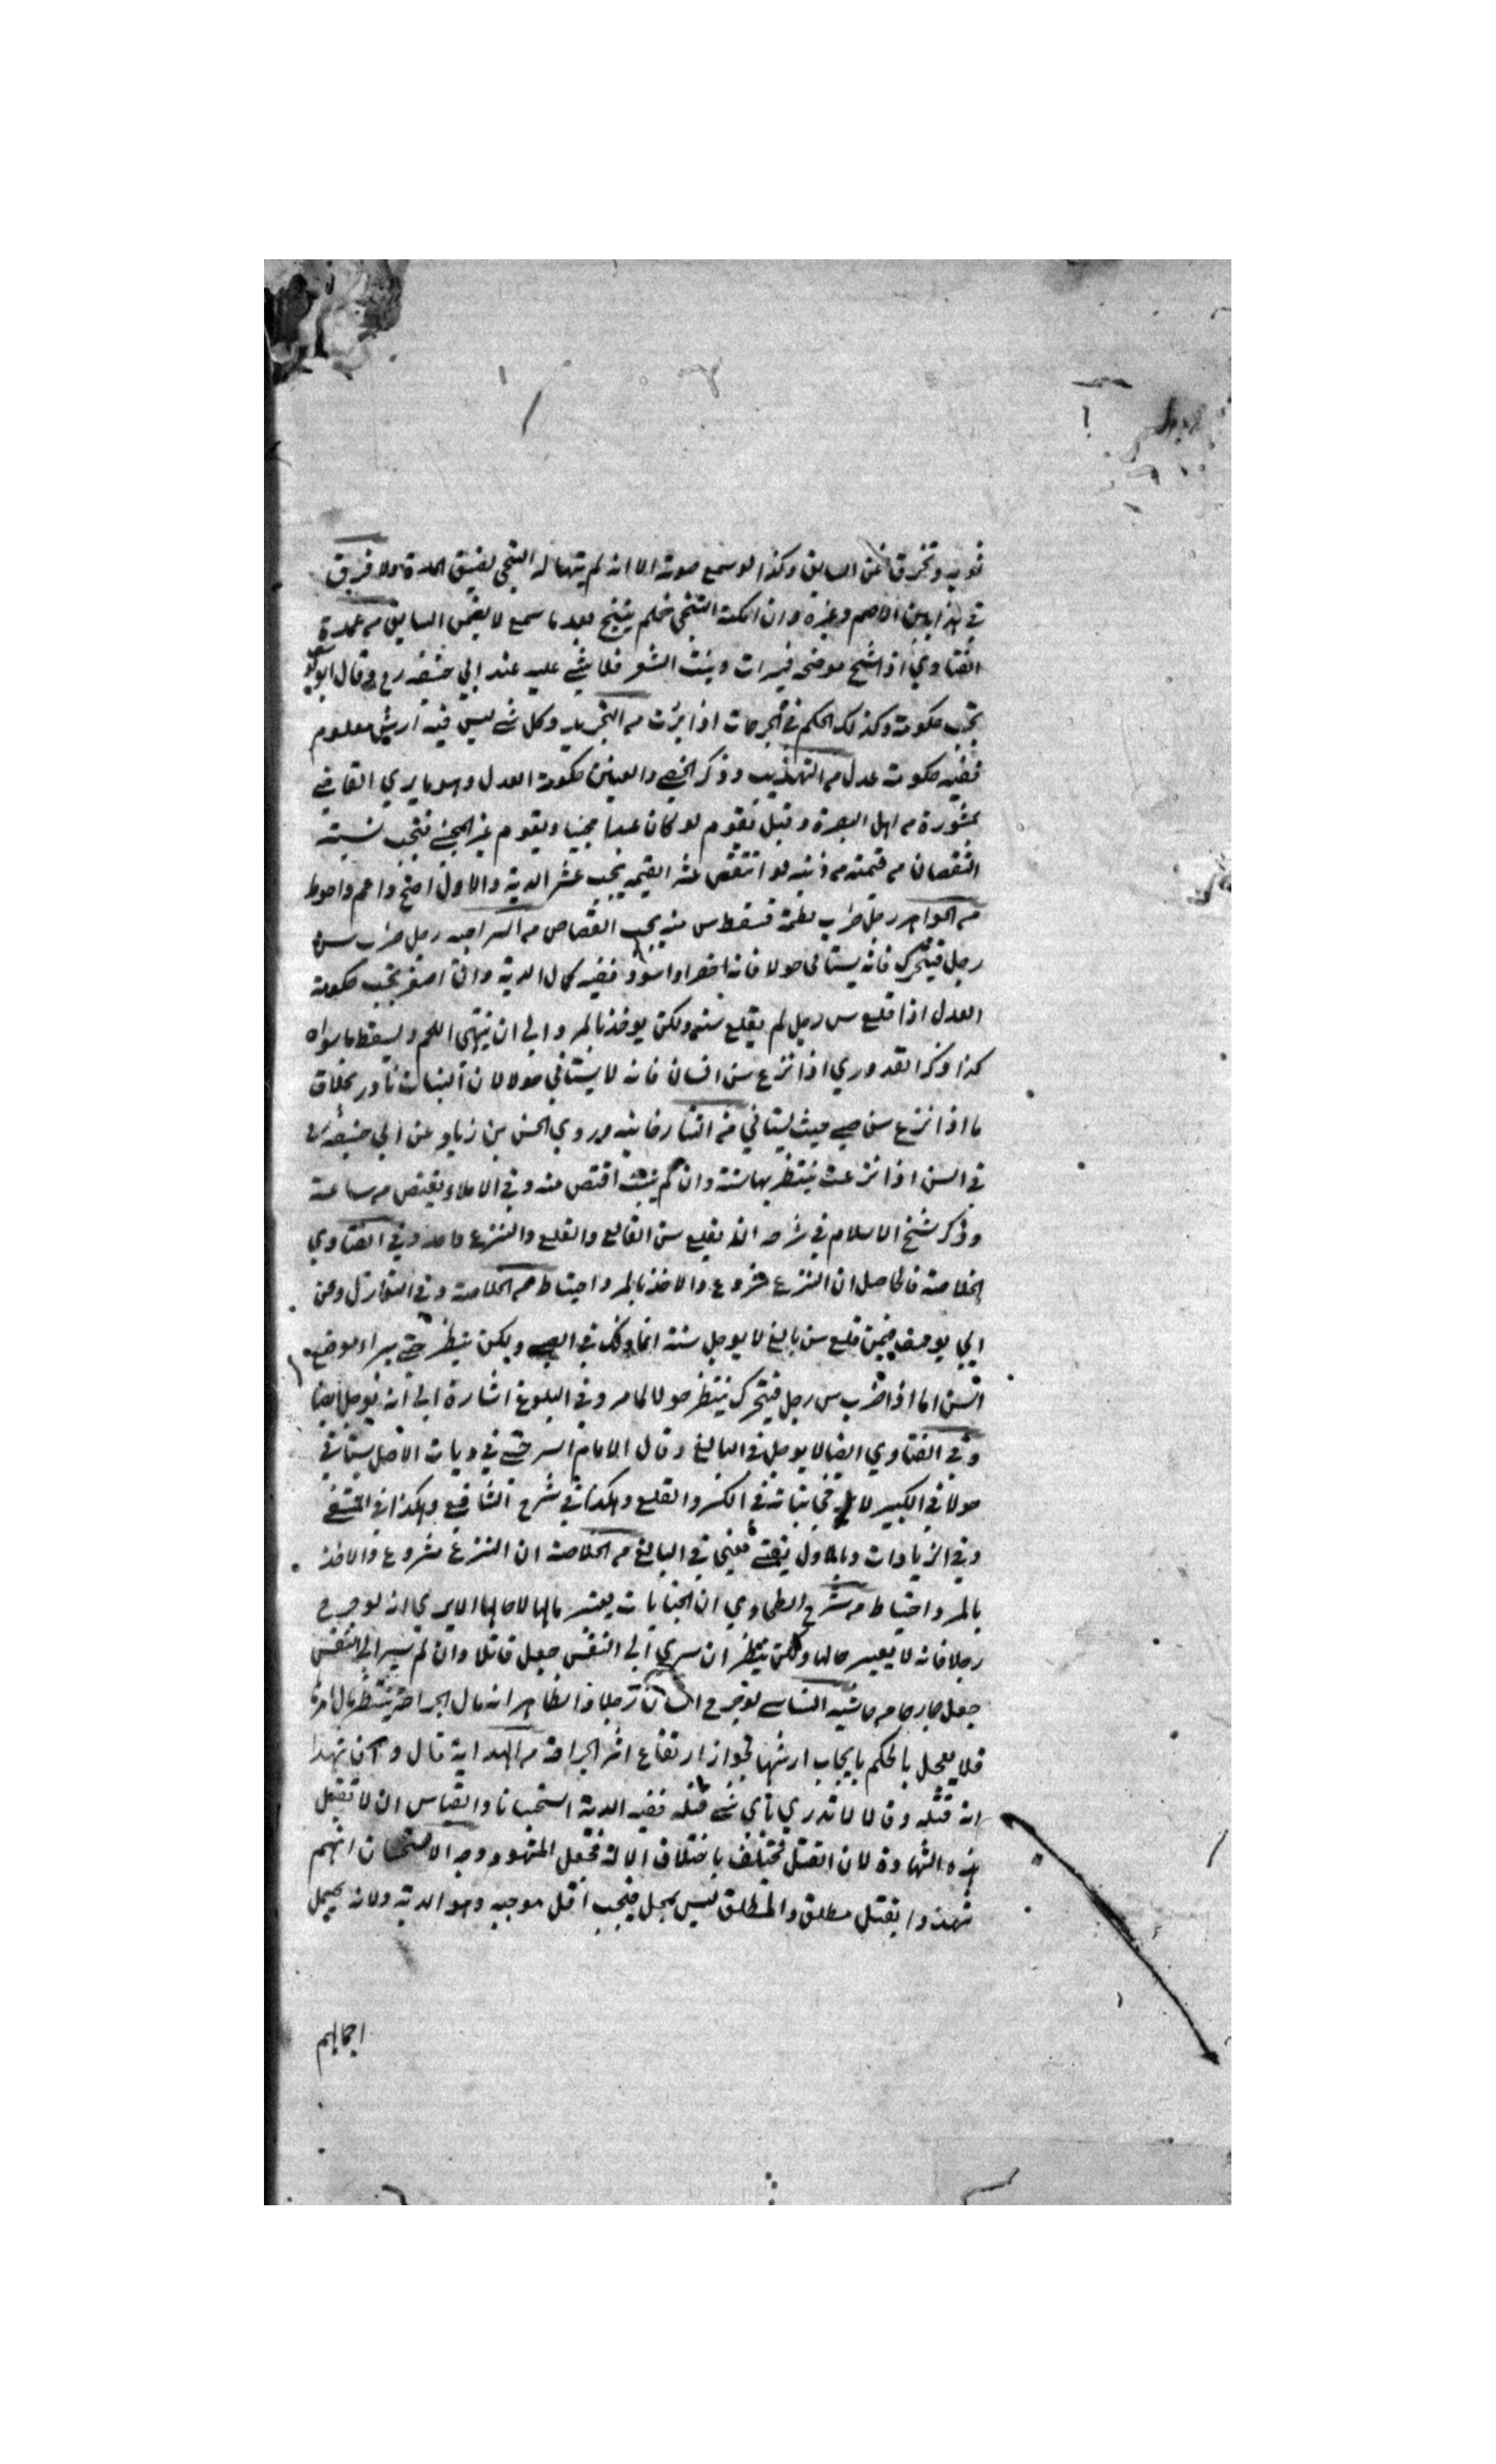 ثوبه وتخرق ضمن السايق وكذا لو سمع صوته الا انه لم يتهيا له التنحي لضيق المدة ولا فرق
في هذا بين الاصم وغيره وان امكنه التنحي فلم يتنح بعد ما سمع لا يضمن السايق من عمدة
الفتاوي اذا شج موضحة فبرات ونبت الشعر فلا شي عليه عند ابي حنيفه رح وقال ابو يوسف
تجب حكومة وكذلك الحكم في الجرحات اذا برئت من التجريد وكل شي ليس فيه ارش معلوم
ففيه حكومة عدل من التهذيب وذكر الخصي والعينين حكومة العدل وهو ما يري القاضي
بمشورة من اهل البصرة وقيل يقوم لو كان عبدا مجنيا ويقوم غير المجني فتجب نسبته
النقصان من قيمته من ديته لو انتقص عشر القيمه يجب عشر الدية والاول اصح واعم واحوط
من الجواهر رجل ضرب لطمة فسقط سن منه يجب القصاص من السراجيه رجل ضرب سن
رجل فيتحرك فانه يستاني حولا فانه اخضر او اسود ففيه كمال الدية وان اصفر تجب حكومة
العدل اذا قلع سن رجل لم يقلع سنه ولكن يوخذ بالمبرد الي ان ينتهي اللحم ويسقط ما سواه
كذا ذكر القدوري اذا نزع سن انسان فانه لا يستاني حولا لان النبات نادر بخلاف
ما اذا نزع سن صبي حيث يستاني من التتارخانيه وروي الحسن بن زياد عن ابي حنيفه رح
في السن اذا نزعت ينتظر بها سنة وان لم ينبت اقتص منه وفي الاملاء يقتص من ساعته
وذكر شيخ الاسلام في شرحه انه يقلع سن القالع والقلع والنزع واحد وفي الفتاوي
الخلاصة فالحاصل ان النزع مشروع والاخذ بالمبرد احتياط من الخلاصة وفي النوازل وعن
ابي يوسف فيمن قلع سن بالغ لا يوجل سنة انما ذلك في الصبي ولكن ينتظر حتي يبراء موضع
السن اما اذا ضرب سن رجل فيتحرك ينتظر حولا لما مر وفي البلوغ اشارة الي انه يوجل ايضا
وفي الفتاوي ايضا لا يوجل في البالغ وقال الامام السرخسي في ديات الاصل يستاني
حولا في الكبير لا في نباته في الكسر والقلع وهكذا في شرح الشافعي وهكذا في المنتقي
وفي الزيادات وبالاول يفتي يعني في البالغ من الخلاصة ان النزع مشروع والاخذ
بالمبرد احتياط من شرح الطحاوي ان الجنايات يعتبر مالها لا حالها الا يري انه لو جرح
رجلا فانه لا يعتبر حالها ولكن ينتظر ان سري الي النفس جعل قاتلا وان لم يسر الي النفس
جعل جارحا من حاشيه النسا لو جرح انسان رجلا فالظاهر انه مال الجراحة ينتظر مال امرها
فلا يعجل بالحكم بايجاب ارشها لجواز ارتفاع اثر الجراحة من الهداية قال وان شهدا
انه قتله وقالا لا ندري باي شي قتله ففيه الدية استحسانا والقياس ان لا تقبل
هذه الشهادة لان القتل يختلف باختلاف الاله فجهل المشهود وجه الاستحسان انهم
شهدوا بقتل مطلق والمطلق ليس بمجمل فيجب اقل موجبيه وهو الدية ولانه يحمل
اجمالهم